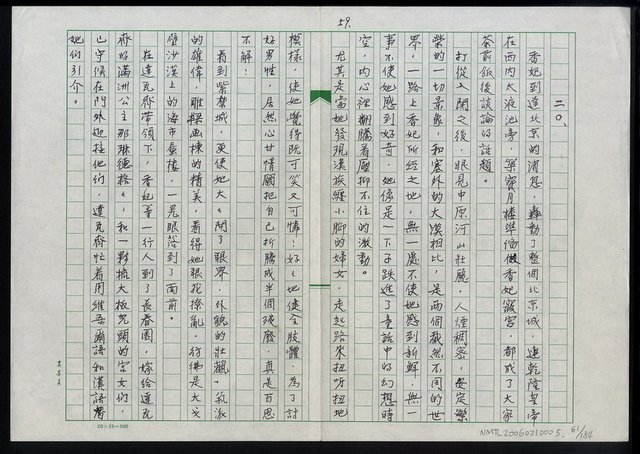 59.
二○、
香妃到達北京的消息，轟動了整個北京城，連乾隆皇帝
在西內太液池旁，築寶月樓準備做香妃寢宮，都成了大家
茶前飯後談論的話題。
打從入關之後，眼見中原河山壯麗，人煙稠密，安定繁
榮的一切景象，和塞外的大漠相比，是兩個截然不同的世
界，一路上香妃所經之地，無一處不使她感到新鮮，無一
事不使她感到好奇，她像是一下子跌進了童話中的幻想時
空，內心裡翻騰着壓抑不住的激動。
尤其是當她發現漢族纏小腳的婦女，走起路來扭呀扭地
模樣，使她覺得既可笑又可憐！好好地健全肢體，為了討
好男性，居然心甘情願把自己折騰成半個殘廢，真是百思
不解！
看到紫禁城，更使她大大開了眼界，外貌的壯觀，氣派
的雄偉，雕樑畫棟的精美，看得她眼花撩亂，彷彿是大戈
壁沙漠上的海市蜃樓，一晃眼落到了面前。
在達瓦齊帶領下，香妃等一行人到了長春園，嫁給達瓦
齊的滿洲公主那琳德格，和一群梳大板兒頭的宮女們，
已守候在門外迎接他們，達瓦齊忙着用維吾爾語和漢語替
她們引介。
20×25=500
NMTL20060210005, 61/184